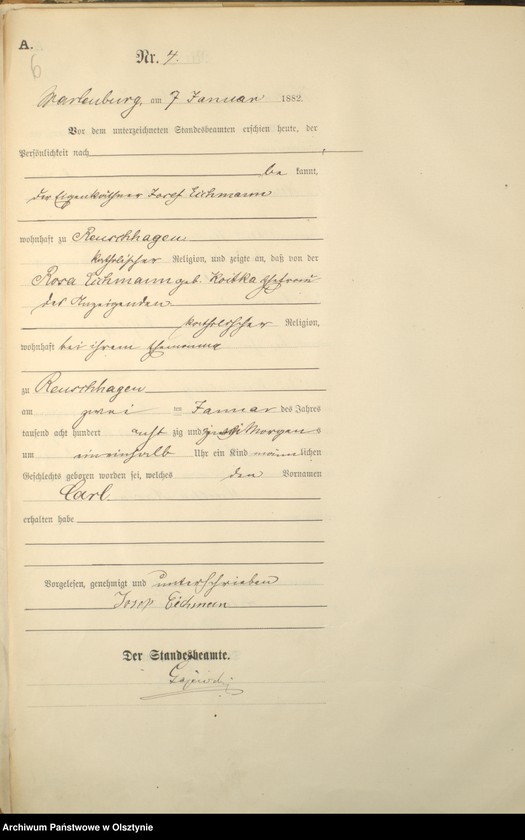 A.
6
Nr. 4.
Wartenburg, am 7 Januar 1882.
Vor dem unterzeichneten Standesbeamten erschien heute, der
Persönlichkeit nach
be kannt,
der Eigenkäthner Josef Eichmann
wohnhaft zu Reuschhagen
katholischer Religion, und zeigte an, daß von der
Rosa Eichmann geb. Koitka Ehefrau
des Anzeigenden
katholischer Religion,
wohnhaft bei ihrem Ehemanne
zu Reuschhagen
am zwei ten Januar des Jahres
tausend acht hundert acht zig und zwei Morgens
um eineinhalb Uhr ein Kind männlichen
Geschlechts geboren worden sei, welches den Vornamen
Carl
erhalten habe
Vorgelesen, genehmigt und unterschrieben
Josef Eichmann
Der Standesbeamte.
Archiwum Państwowe w Olsztynie